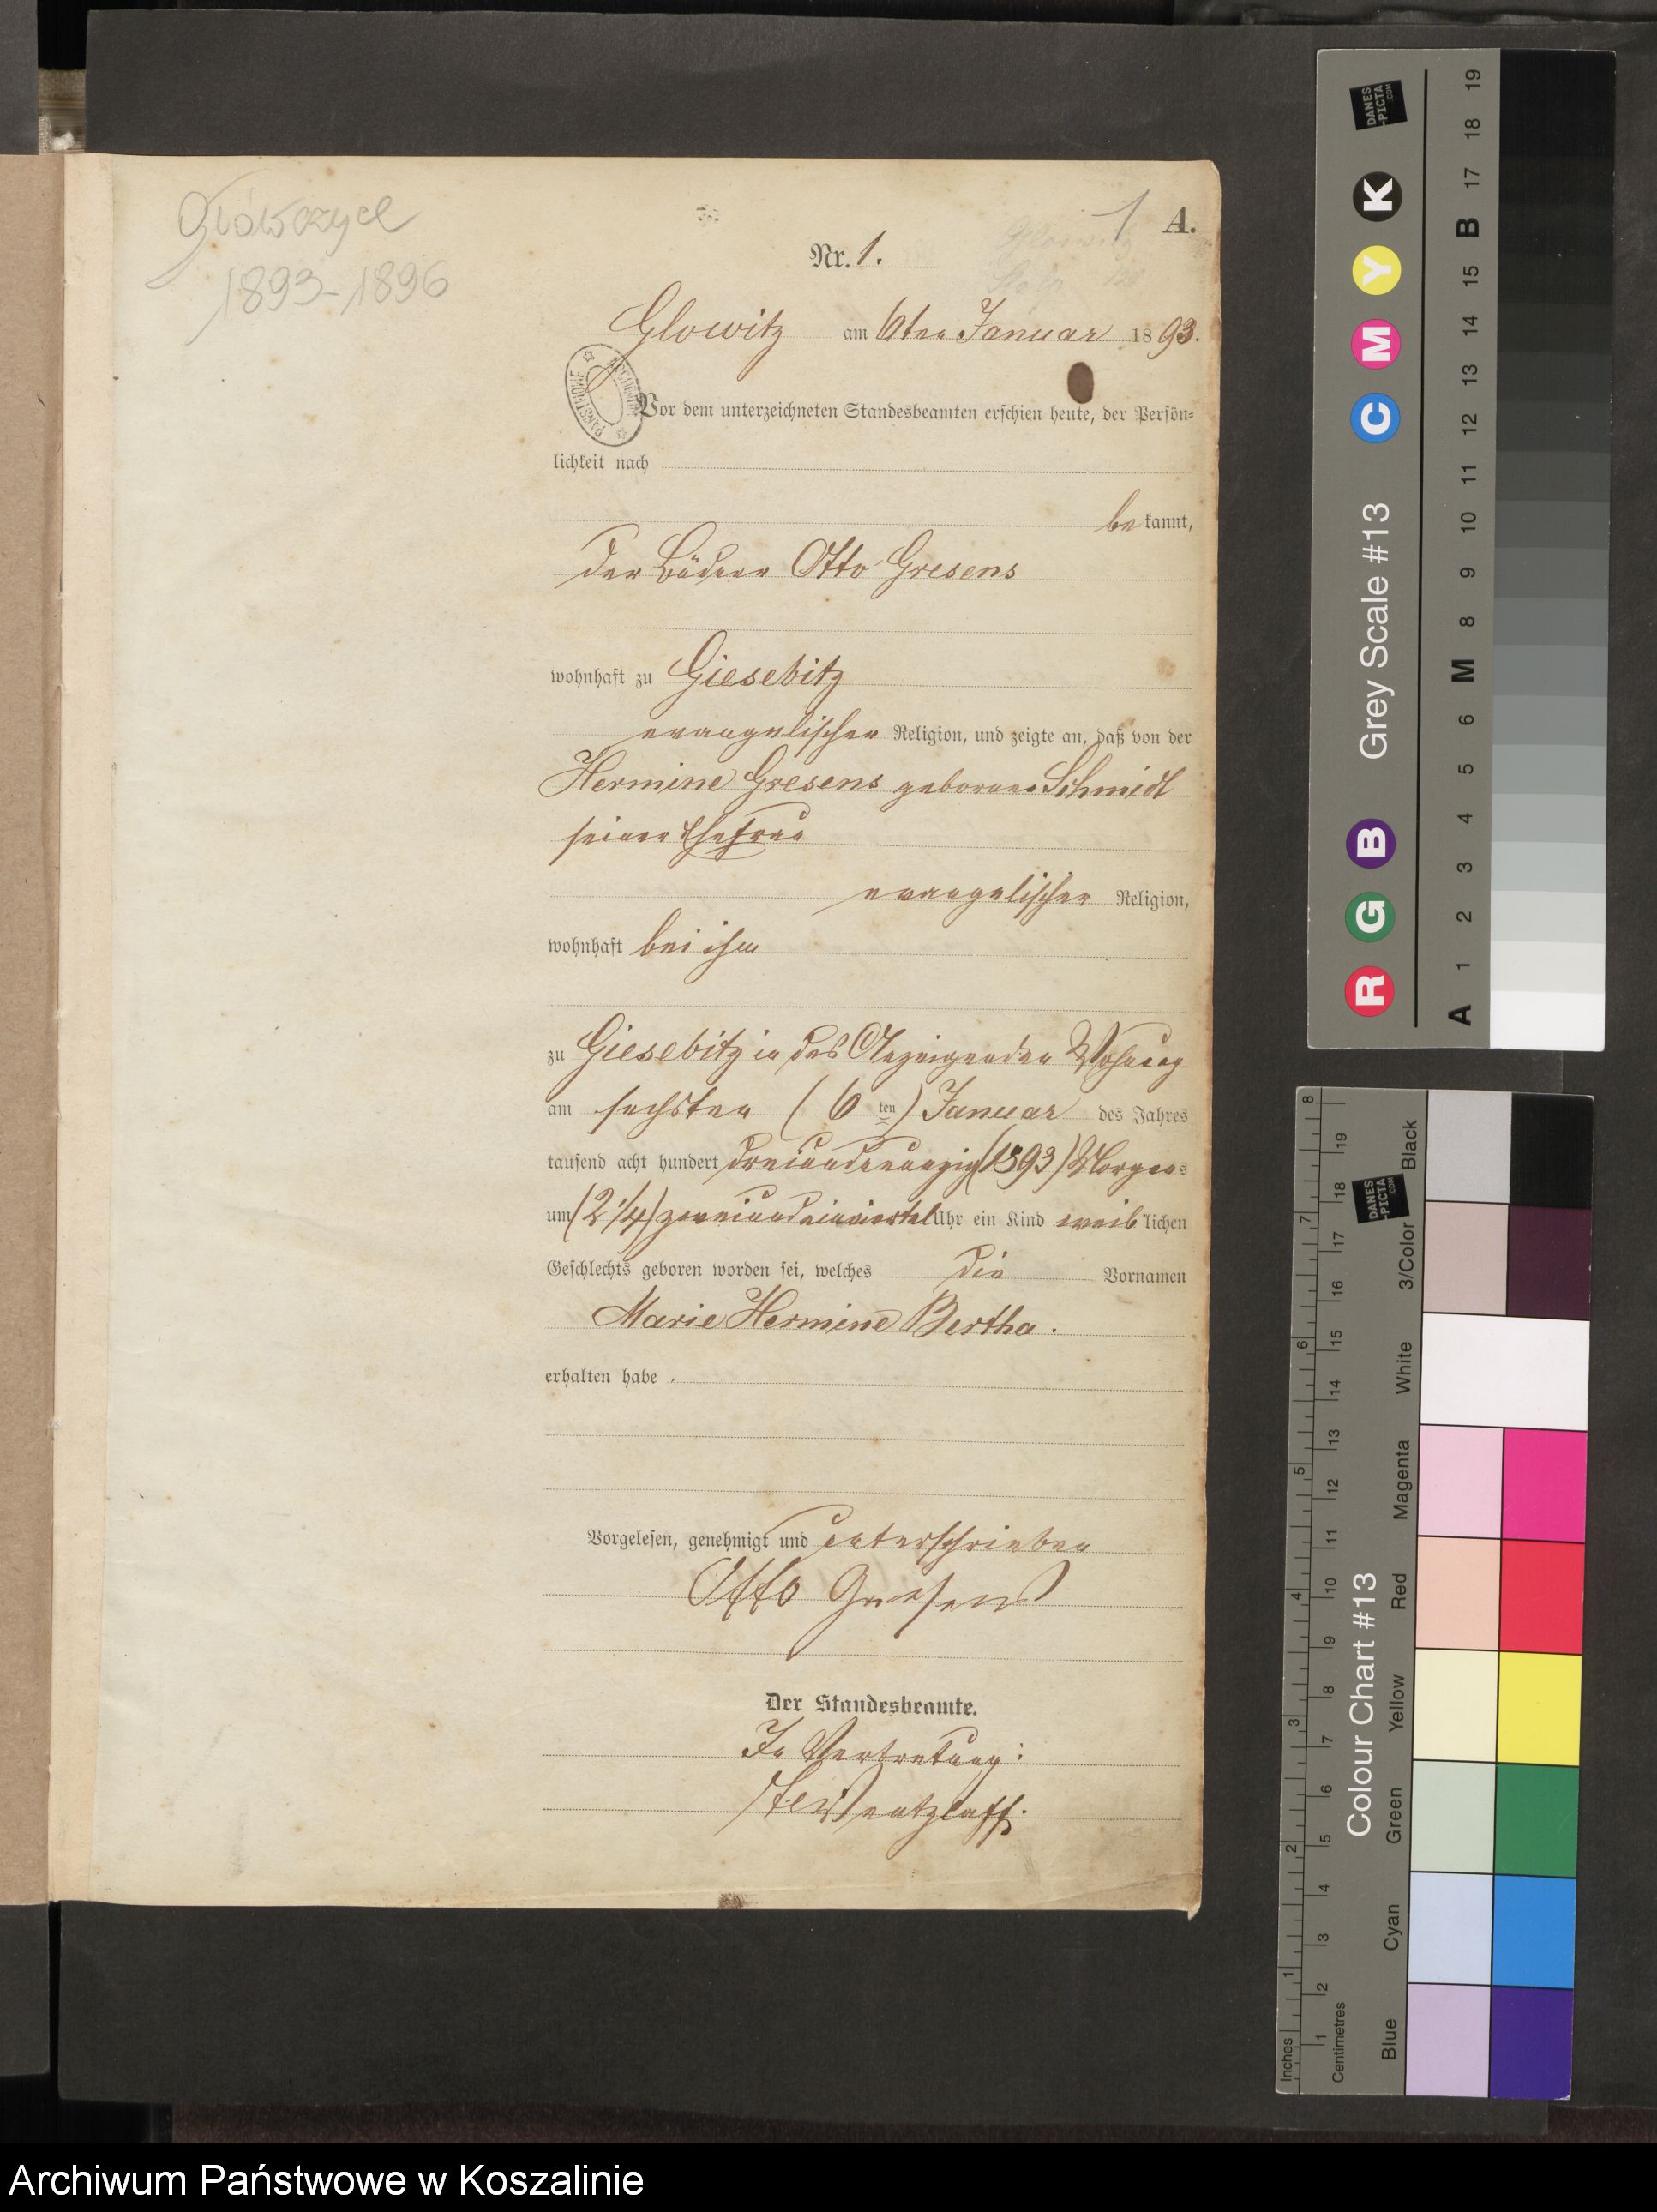 Główczyce
1893-1896
1 A.
Nr. 1.
Glowitz am 6ten Januar 1893.
Vor dem unterzeichneten Standesbeamten erschien heute, der Persön=
lichkeit nach
be kannt,
der Büdner Otto Gresens
wohnhaft zu Giesebitz
evangelischer Religion, und zeigte an, daß von der
Hermine Gresens geborene Schmidt
seiner Ehefrau
evangelischer Religion,
wohnhaft bei ihm
zu Giesebitz in des Anzeigenden Wohnung
am sechsten (6 ten) Januar des Jahres
tausend acht hundert dreiundneunzig (1893) Morgens
um (2 1/4) zweiundeinviertel Uhr ein Kind weib lichen
Geschlechts geboren worden sei, welches die Vornamen
Marie Hermine Bertha.
erhalten habe.
Vorgelesen, genehmigt und unterschrieben
Otto Gresens
Der Standesbeamte.
In Vertretung:
ARCHIWUM PAŃSTWOWE
DANES
-PICTA
.COM
R G B C M Y K
Grey Scale #13
A 1 2 3 4 5 6 M 8 9 10 11 12 13 14 15 B 17 18 19
DANES
-PICTA
.COM
Colour Chart #13
Blue Cyan Green Yellow Red Magenta White 3/Color Black
Inches 1 2 3 4 5 6 7 8
Centimetres 1 2 3 4 5 6 7 8 9 10 11 12 13 14 15 16 17 18 19
Archiwum Państwowe w Koszalinie